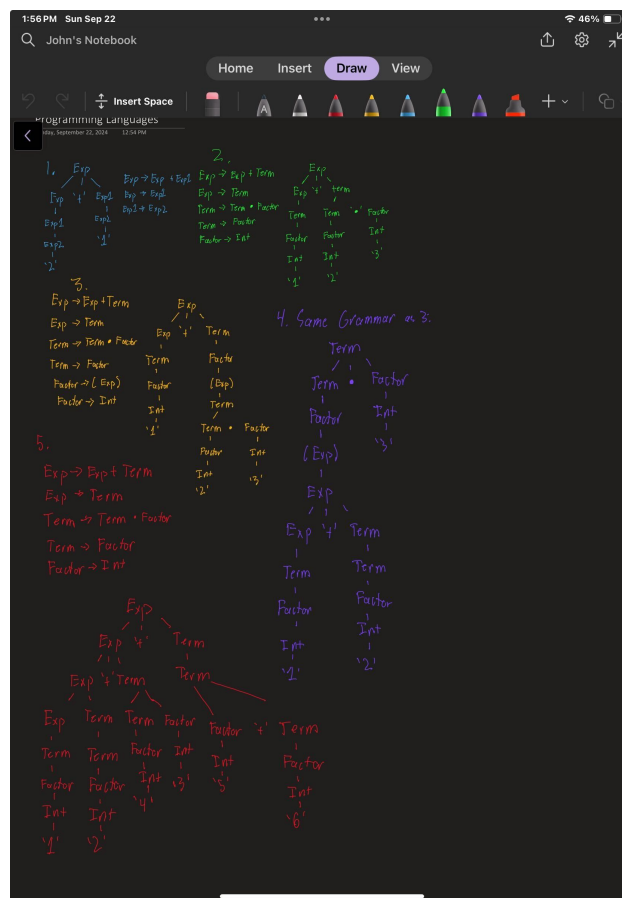 1:56 PM Sun Sep 22
46%
John's Notebook
Home Insert Draw View
Insert Space
Programming Languages
day, September 22, 2024 12:54 PM
1.
Exp
Exp '+' Exp1
Exp1 Exp2
Exp2 '1'
'2'
Exp → Exp + Exp1
Exp → Exp1
Exp1 → Exp2
2.
Exp → Exp + Term
Exp → Term
Term → Term • Factor
Term → Factor
Factor → Int
Exp
Exp '+' term
Term Term '•' Factor
Factor Factor Int
Int Int '3'
'1' '2'
3.
Exp → Exp + Term
Exp → Term
Term → Term • Factor
Term → Factor
Factor → ( Exp )
Factor → Int
Exp
Exp '+' Term
Term Factor
Factor (Exp)
Int Term
'1' Term • Factor
Factor Int
Int '3'
'2'
4. Same Grammar as 3.
Term
Term • Factor
Factor Int
(Exp) '3'
Exp
Exp '+' Term
Term Term
Factor Factor
Int Int
'1' '2'
5.
Exp → Exp + Term
Exp → Term
Term → Term • Factor
Term → Factor
Factor → Int
Exp
Exp '+' Term
Exp '+' Term Term
Exp Term Term Factor Factor '+' Term
Term Term Factor Int Int Factor
Factor Factor Int '3' '5' Int
Int Int '4' '6'
'1' '2'